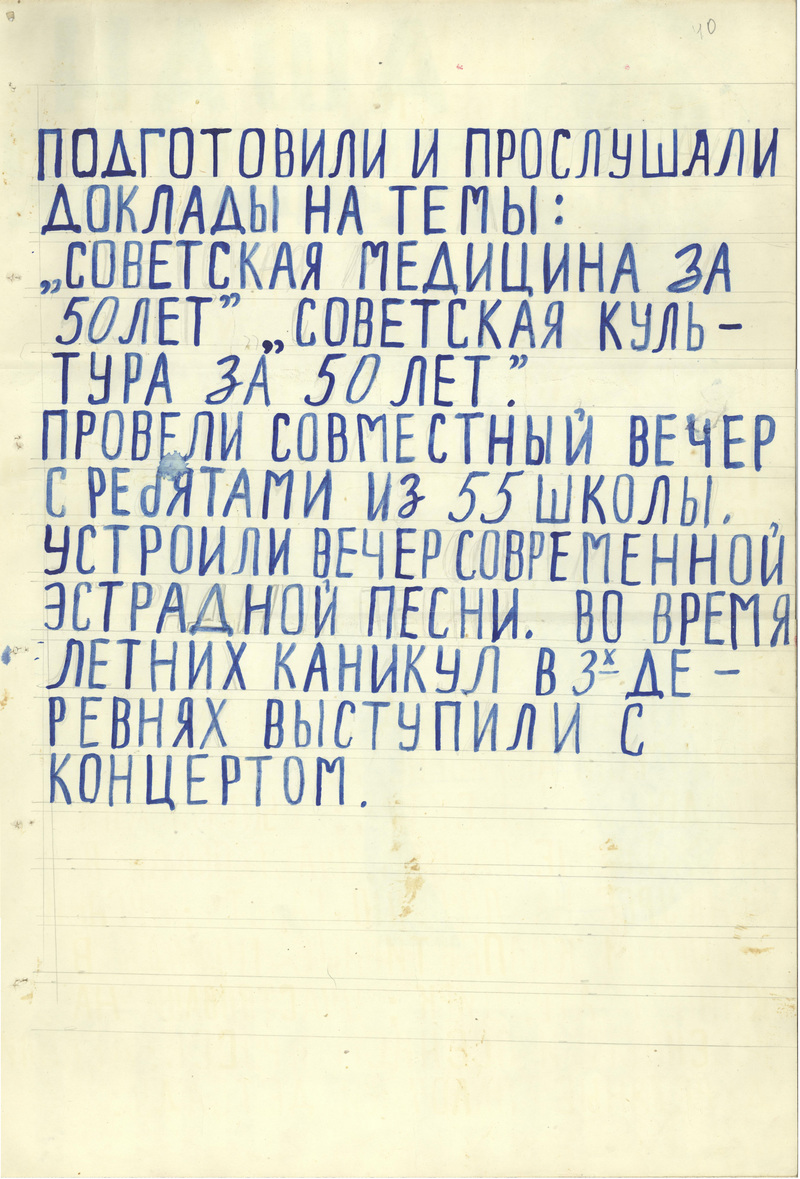 40
ПОДГОТОВИЛИ И ПРОСЛУШАЛИ
ДОКЛАДЫ НА ТЕМЫ:
„СОВЕТСКАЯ МЕДИЦИНА ЗА
50 ЛЕТ” „СОВЕТСКАЯ КУЛЬ-
ТУРА ЗА 50 ЛЕТ.”
ПРОВЕЛИ СОВМЕСТНЫЙ ВЕЧЕР
С РЕБЯТАМИ ИЗ 55 ШКОЛЫ.
УСТРОИЛИ ВЕЧЕР СОВРЕМЕННОЙ
ЭСТРАДНОЙ ПЕСНИ. ВО ВРЕМЯ
ЛЕТНИХ КАНИКУЛ В 3х ДЕ-
РЕВНЯХ ВЫСТУПИЛИ С
КОНЦЕРТОМ.